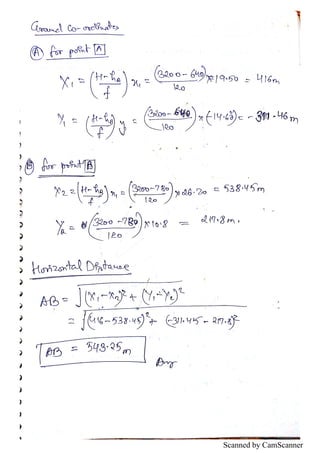 Ground Co-ordinates
Ⓐ for point A
X₁ = ((H-hₐ)/f) x₁ = ((3200-640)/120) × 19.50 = 416m
Y₁ = ((H-hₐ)/f) y = ((3200-640)/120) × (-14.60) = -311.46m
Ⓑ for point B
X₂ = ((H-hₐ)/f) x₁ = ((3200-780)/120) × 26.70 = 538.45m
Y₂ = ((3200-780)/120) × 10.8 = 217.8m.
Horizontal Distance
AB = √((X₁-X₂)² + (Y₁-Y₂)²)
= √((416-538.45)² + (-311.45-217.8)²)
AB = 543.25m
Ans
Scanned by CamScanner